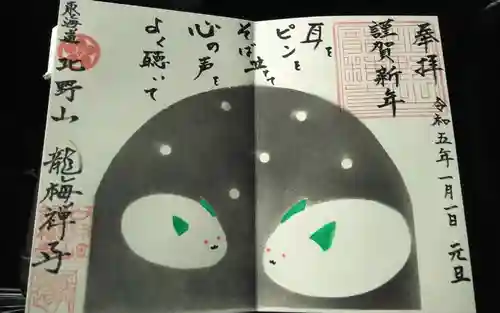 奉拝
謹賀新年
令和五年一月一日 元旦
耳を
ピンと
そば立て
心の声を
よく聴いて
東海道
北野山
龍梅禅寺